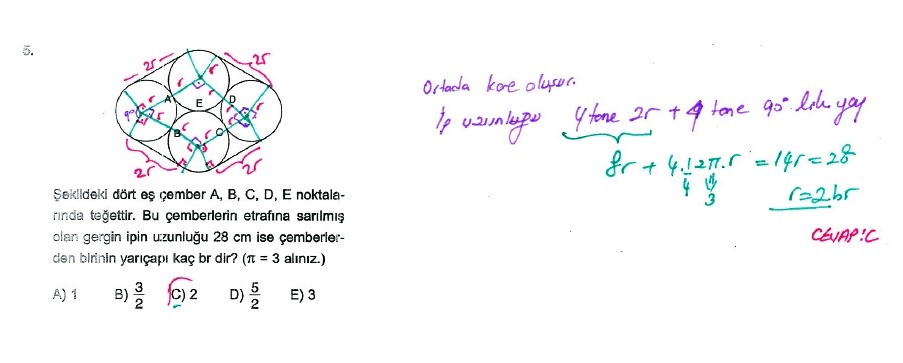 5.
2r
2r
r
r
r
r
A
D
E
90°
B
C
r
r
2r
2r
Şekildeki dört eş çember A, B, C, D, E noktala-
rında teğettir. Bu çemberlerin etrafına sarılmış
olan gergin ipin uzunluğu 28 cm ise çemberler-
den birinin yarıçapı kaç br dir? (π = 3 alınız.)
A) 1 B) 3/2 C) 2 D) 5/2 E) 3
Ortada kare oluşur.
İp uzunluğu 4 tane 2r + 4 tane 90° lik yay
8r + 4.1/4 2π.r = 14r = 28
3
r=2br
CEVAP:C